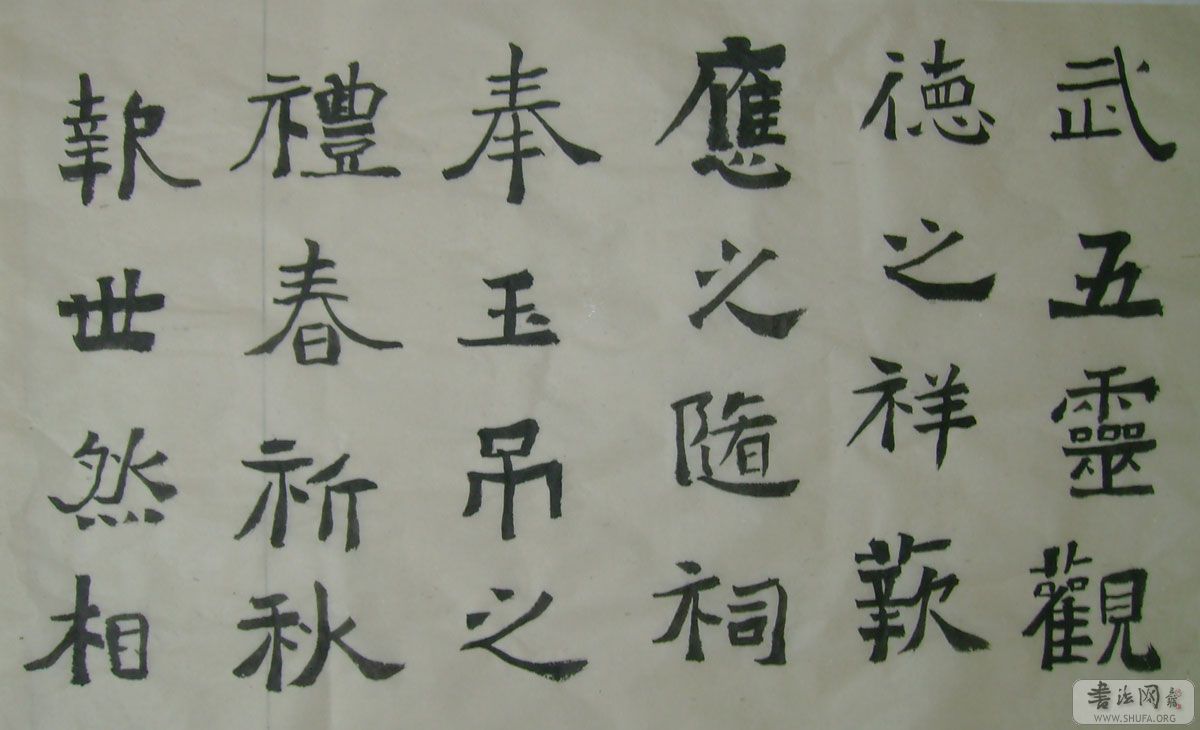 武五靈觀
德之祥歎
應之隨祠
奉玉吊之
禮春祈秋
報世然相
書法网
WWW.SHUFA.ORG